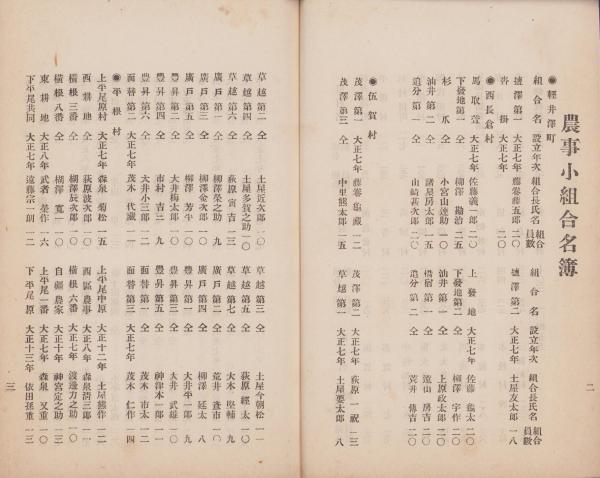 農事小組合名簿
組合名 設立年次 組合長氏名 組合員数 組合名 設立年次 組合長氏名 組合員数
◉輕井澤町
塩澤第一 大正七年 藤巻藤五郎 二〇 塩澤第二 大正七年 土屋友太郎 一八
沓掛 大正七年 二〇
◉西長倉村
馬取萱 大正七年 佐藤義一郎 二〇 上發地 大正七年 佐藤龜太 二〇
下發地第一 仝 柳澤勘治 二五 下發地第二 仝 柳澤宇作 二〇
杉瓜 仝 小宮山達助 一〇 油井第一 仝 上原政太郎 二〇
油井第二 仝 諸星房太郎 一五 借宿第一 仝 遠山房吉 二〇
追分第一 仝 山崎甚次郎 二〇 追分第二 仝 荒井傳吉 二〇
◉伍賀村
茂澤第一 大正七年 藤巻龜藏 一二 茂澤第二 大正七年 萩原一祝 一三
茂澤第三 仝 中里熊太郎 一五 草越第一 大正七年 土屋要太郎 八
二
草越第二 仝 土屋近次郎 一〇 草越第三 仝 土屋今朝松 一一
草越第四 仝 土屋多賀之助 一〇 草越第五 仝 萩原經太 一〇
草越第六 仝 萩原寅吉 一三 草越第七 仝 大木堅輔 九
廣戸第一 仝 柳澤榮之助 九 廣戸第二 仝 荒井彦市 〇
廣戸第三 仝 柳澤金次郎 一〇 廣戸第四 仝 柳澤延太 八
廣戸第五 仝 柳澤芳平 一〇 豊昇第一 仝 大井平一郎 九
豊昇第二 仝 大井梅太郎 一〇 豊昇第三 仝 大井武雄 一〇
豊昇第四 仝 市村吉三 九 豊昇第五 仝 神津本一郎 一一
豊昇第六 仝 大井小三郎 一二 面替第一 仝 茂木市太 一二
面替第二 大正七年 茂木代藏 一一 面替第三 大正七年 茂木仁作 一四
◉平根村
上平尾原村 大正七年 森泉菊松 一五 上平尾中原 大正十二年 土屋熊作 二〇
西耕地 大正七年 荻原波次郎 一〇 西區農事 大正八年 森泉清三郎 一一
横根三番 大正七年 楜澤辰次郎 一〇 横根六番 大正七年 渡邊力之助 一〇
横根八番 大正七年 楜澤寛一 一〇 自疆農家 大正十年 神宮定之助 一三
東耕地 大正八年 武者榮作 一六 上平尾一番 大正七年 森泉又重 一〇
下平尾共同 大正七年 遠藤宗一朗 一二 下平尾原 大正十三年 依田孫重 一三
三